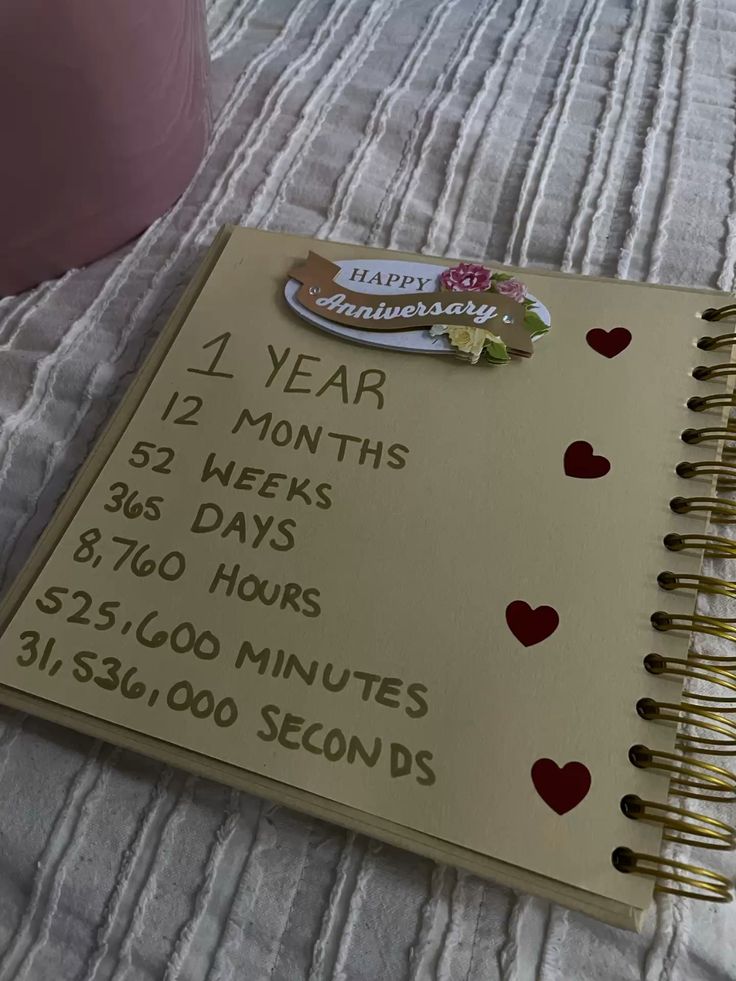 HAPPY
Anniversary
1 YEAR
12 MONTHS
52 WEEKS
365 DAYS
8,760 HOURS
525,600 MINUTES
31,536,000 SECONDS